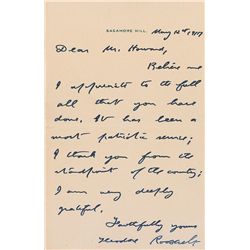 SAGAMORE HILL.
May 12th 1917
Dear Mr. Howard,
Believe me
I appreciate to the full
all that you have
done. It has been a
most patriotic service;
I thank you from the
standpoint of the country;
I am very deeply
grateful.
Faithfully yours
Theodore Roosevelt